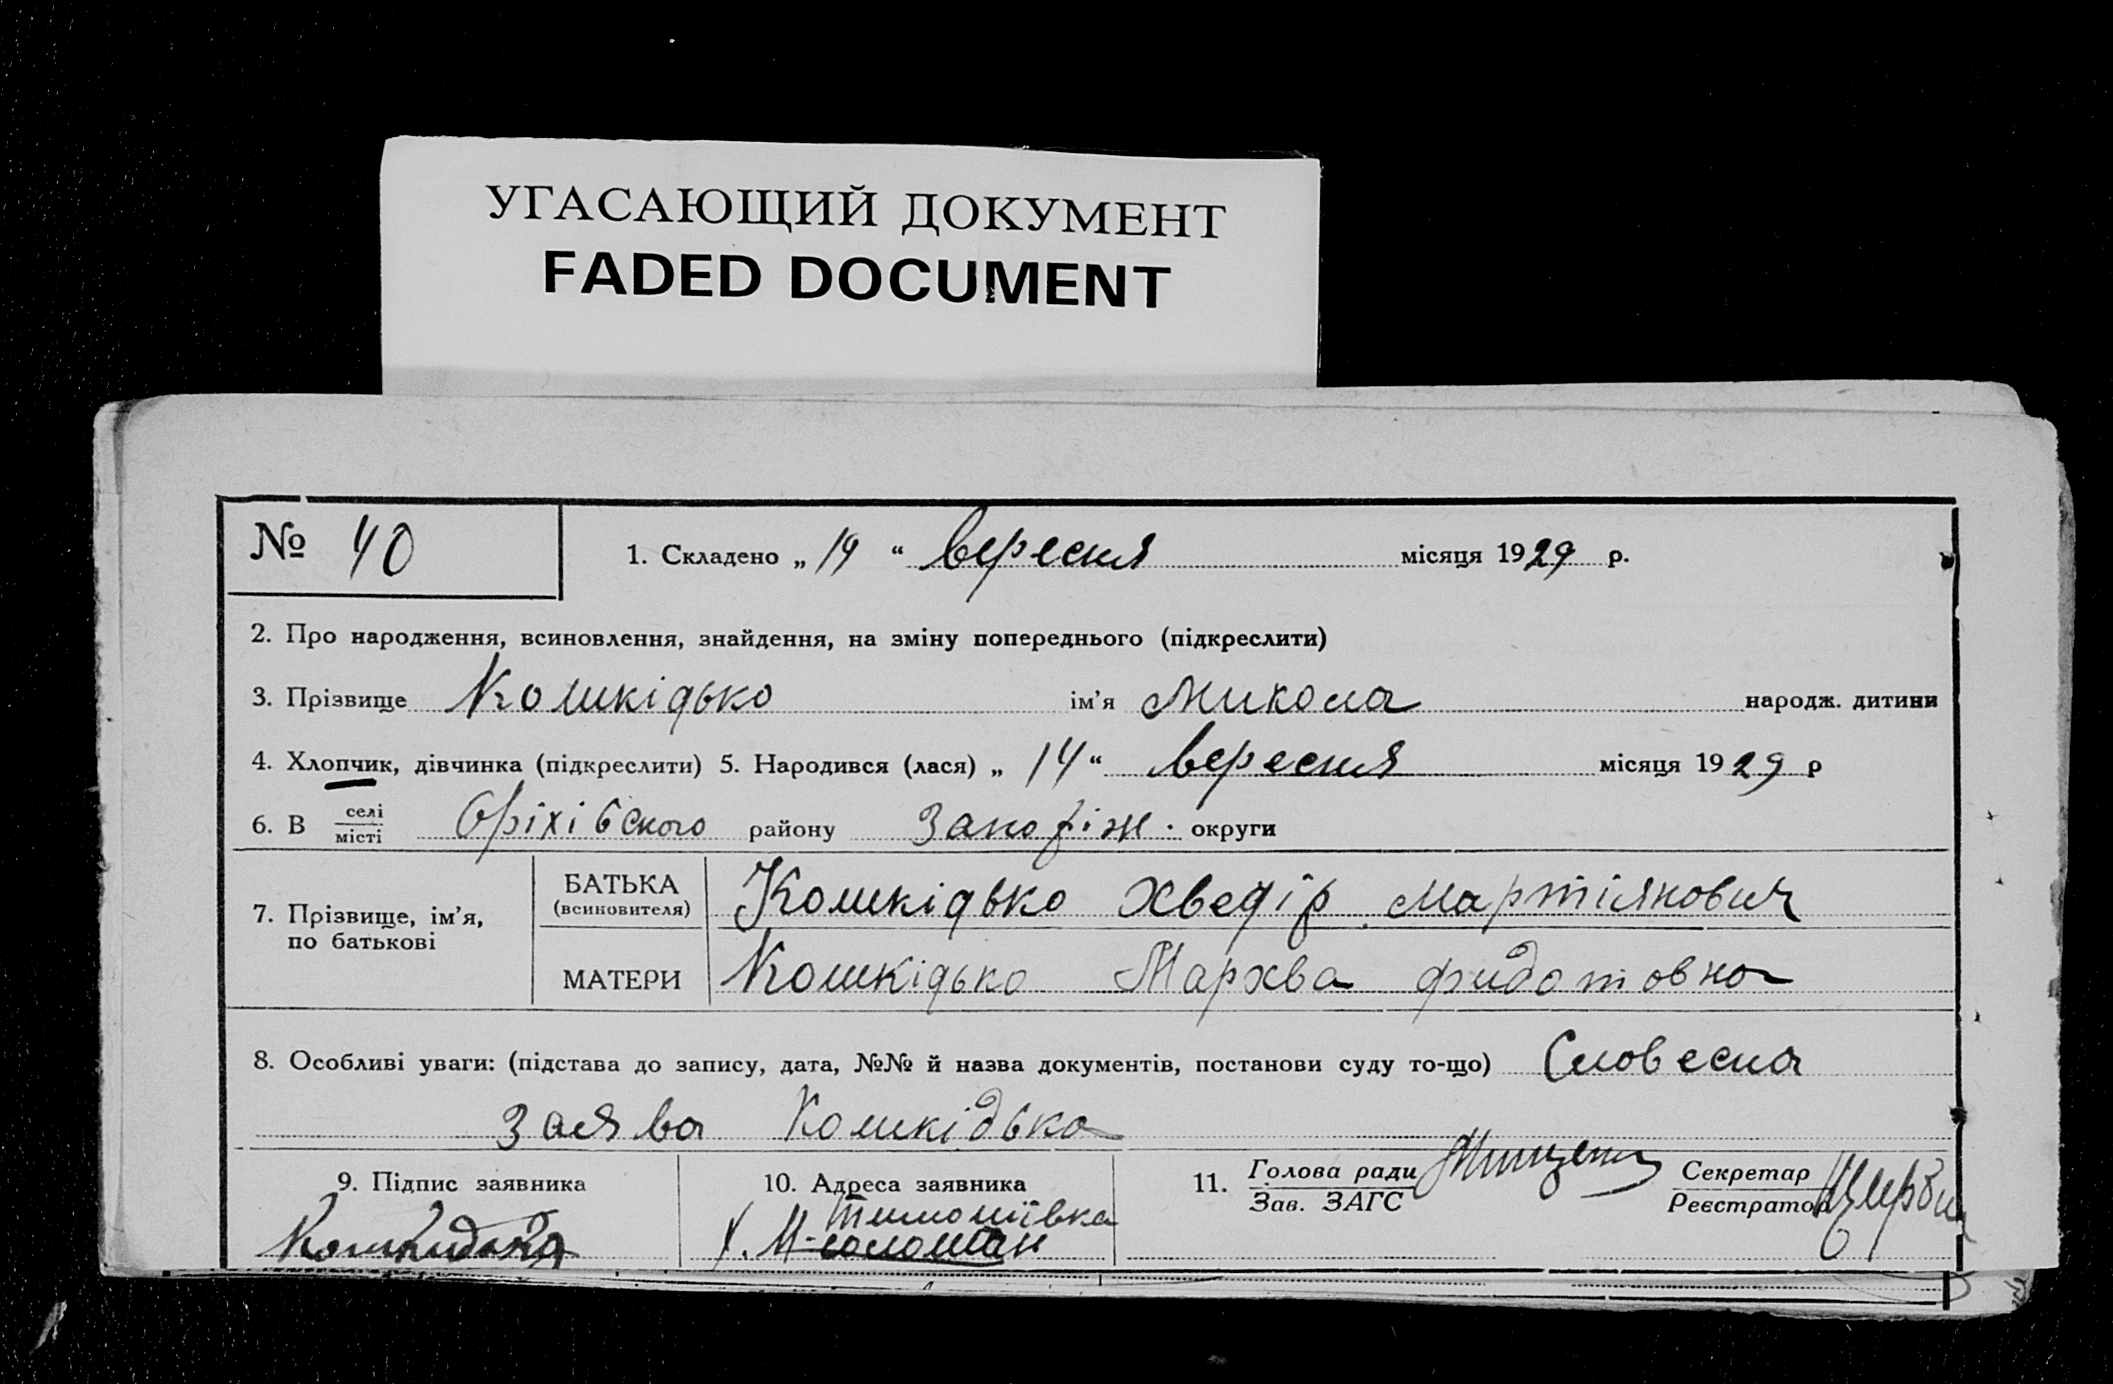 УГАСАЮЩИЙ ДОКУМЕНТ
FADED DOCUMENT
№ 40
1. Складено „ 14 “ вересня місяця 1929 р.
2. Про народження, всиновлення, знайдення, на зміну попереднього (підкреслити)
3. Прізвище Кошкідько ім’я Микола народж. дитини
4. Хлопчик, дівчинка (підкреслити) 5. Народився (лася) „ 14 “ вересня місяця 1929 р
6. В селі місті Оріхівского району Запоріж. округи
7. Прізвище, ім’я, по батькові
БАТЬКА (всиновителя) Кошкідько Хведір Мартіянович
МАТЕРИ Кошкідько Мархва Фидотовна
8. Особливі уваги: (підстава до запису, дата, №№ й назва документів, постанови суду то-що) Словесна
заява Кошкідька
9. Підпис заявника 10. Адреса заявника 11. Голова ради Зав. ЗАГС Секретар Реєстратор
Тимошівка
Х.